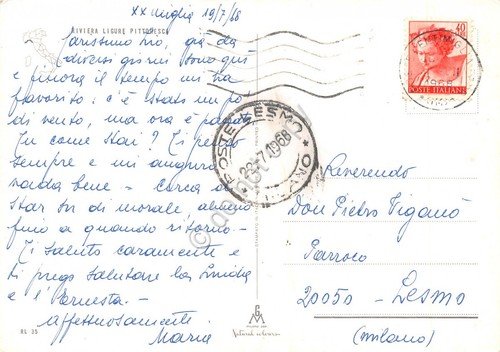 xx miglia 19/7/68
RIVIERA LIGURE PITTORESCA
Carissimo zio, già da
diversi giorni sono qui
e finora il tempo mi ha
favorito: c'è stato un po'
di vento, ma ora è passato
Tu come stai? Ti penso
sempre e mi auguro
vada bene - cerca di
star su di morale, almeno
fino a quando ritorno -
Ti saluto caramente e
ti prego salutare la Linda
e l'Ernesta -
affettuosamente
Maria
RL 35
40
POSTE ITALIANE
1968
POSTE LESMO
22-7-1968
Reverendo
Don Pietro Viganò
Parroco
20050 - Lesmo
(Milano)